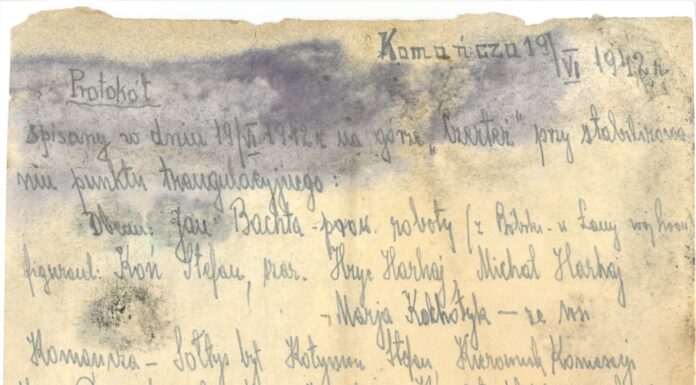 Komańcza 19/VI 1942 r
Protokół
spisany w dniu 19/VI 1942 r na górze „Czerteż" przy stabilizowa
niu punktu traungulacyjnego:
Obecni: Jan Bachta - prow. roboty (z Bibrki - u Łany woj
figurant: Koń Stefan, Hryc Harhaj, Michał Harhaj
- Marja Kochołyk - ze wsi
Komańcza - Sołtys był Kotymon Stefan, Kierownik Komisji